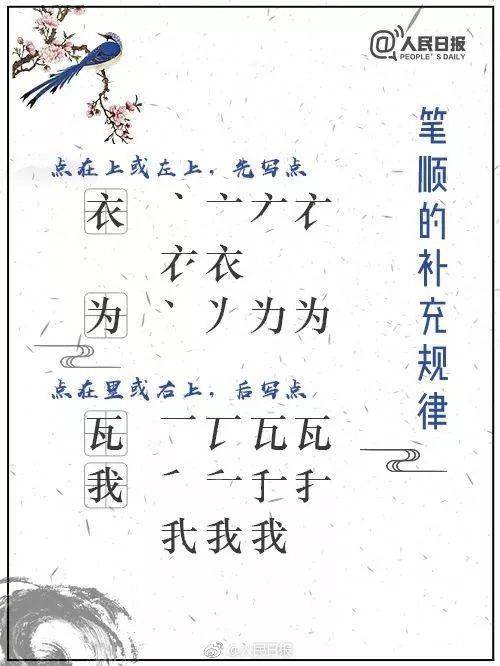 @人民日报
PEOPLE'S DAILY
笔顺的补充规律
点在上或左上，先写点
衣 丶 亠 ナ 衣
衣
为 丶 丷 为 为
点在里或右上，后写点
瓦 一 瓦 瓦
我 一 二 于 扌
我 我 我
@人民日报